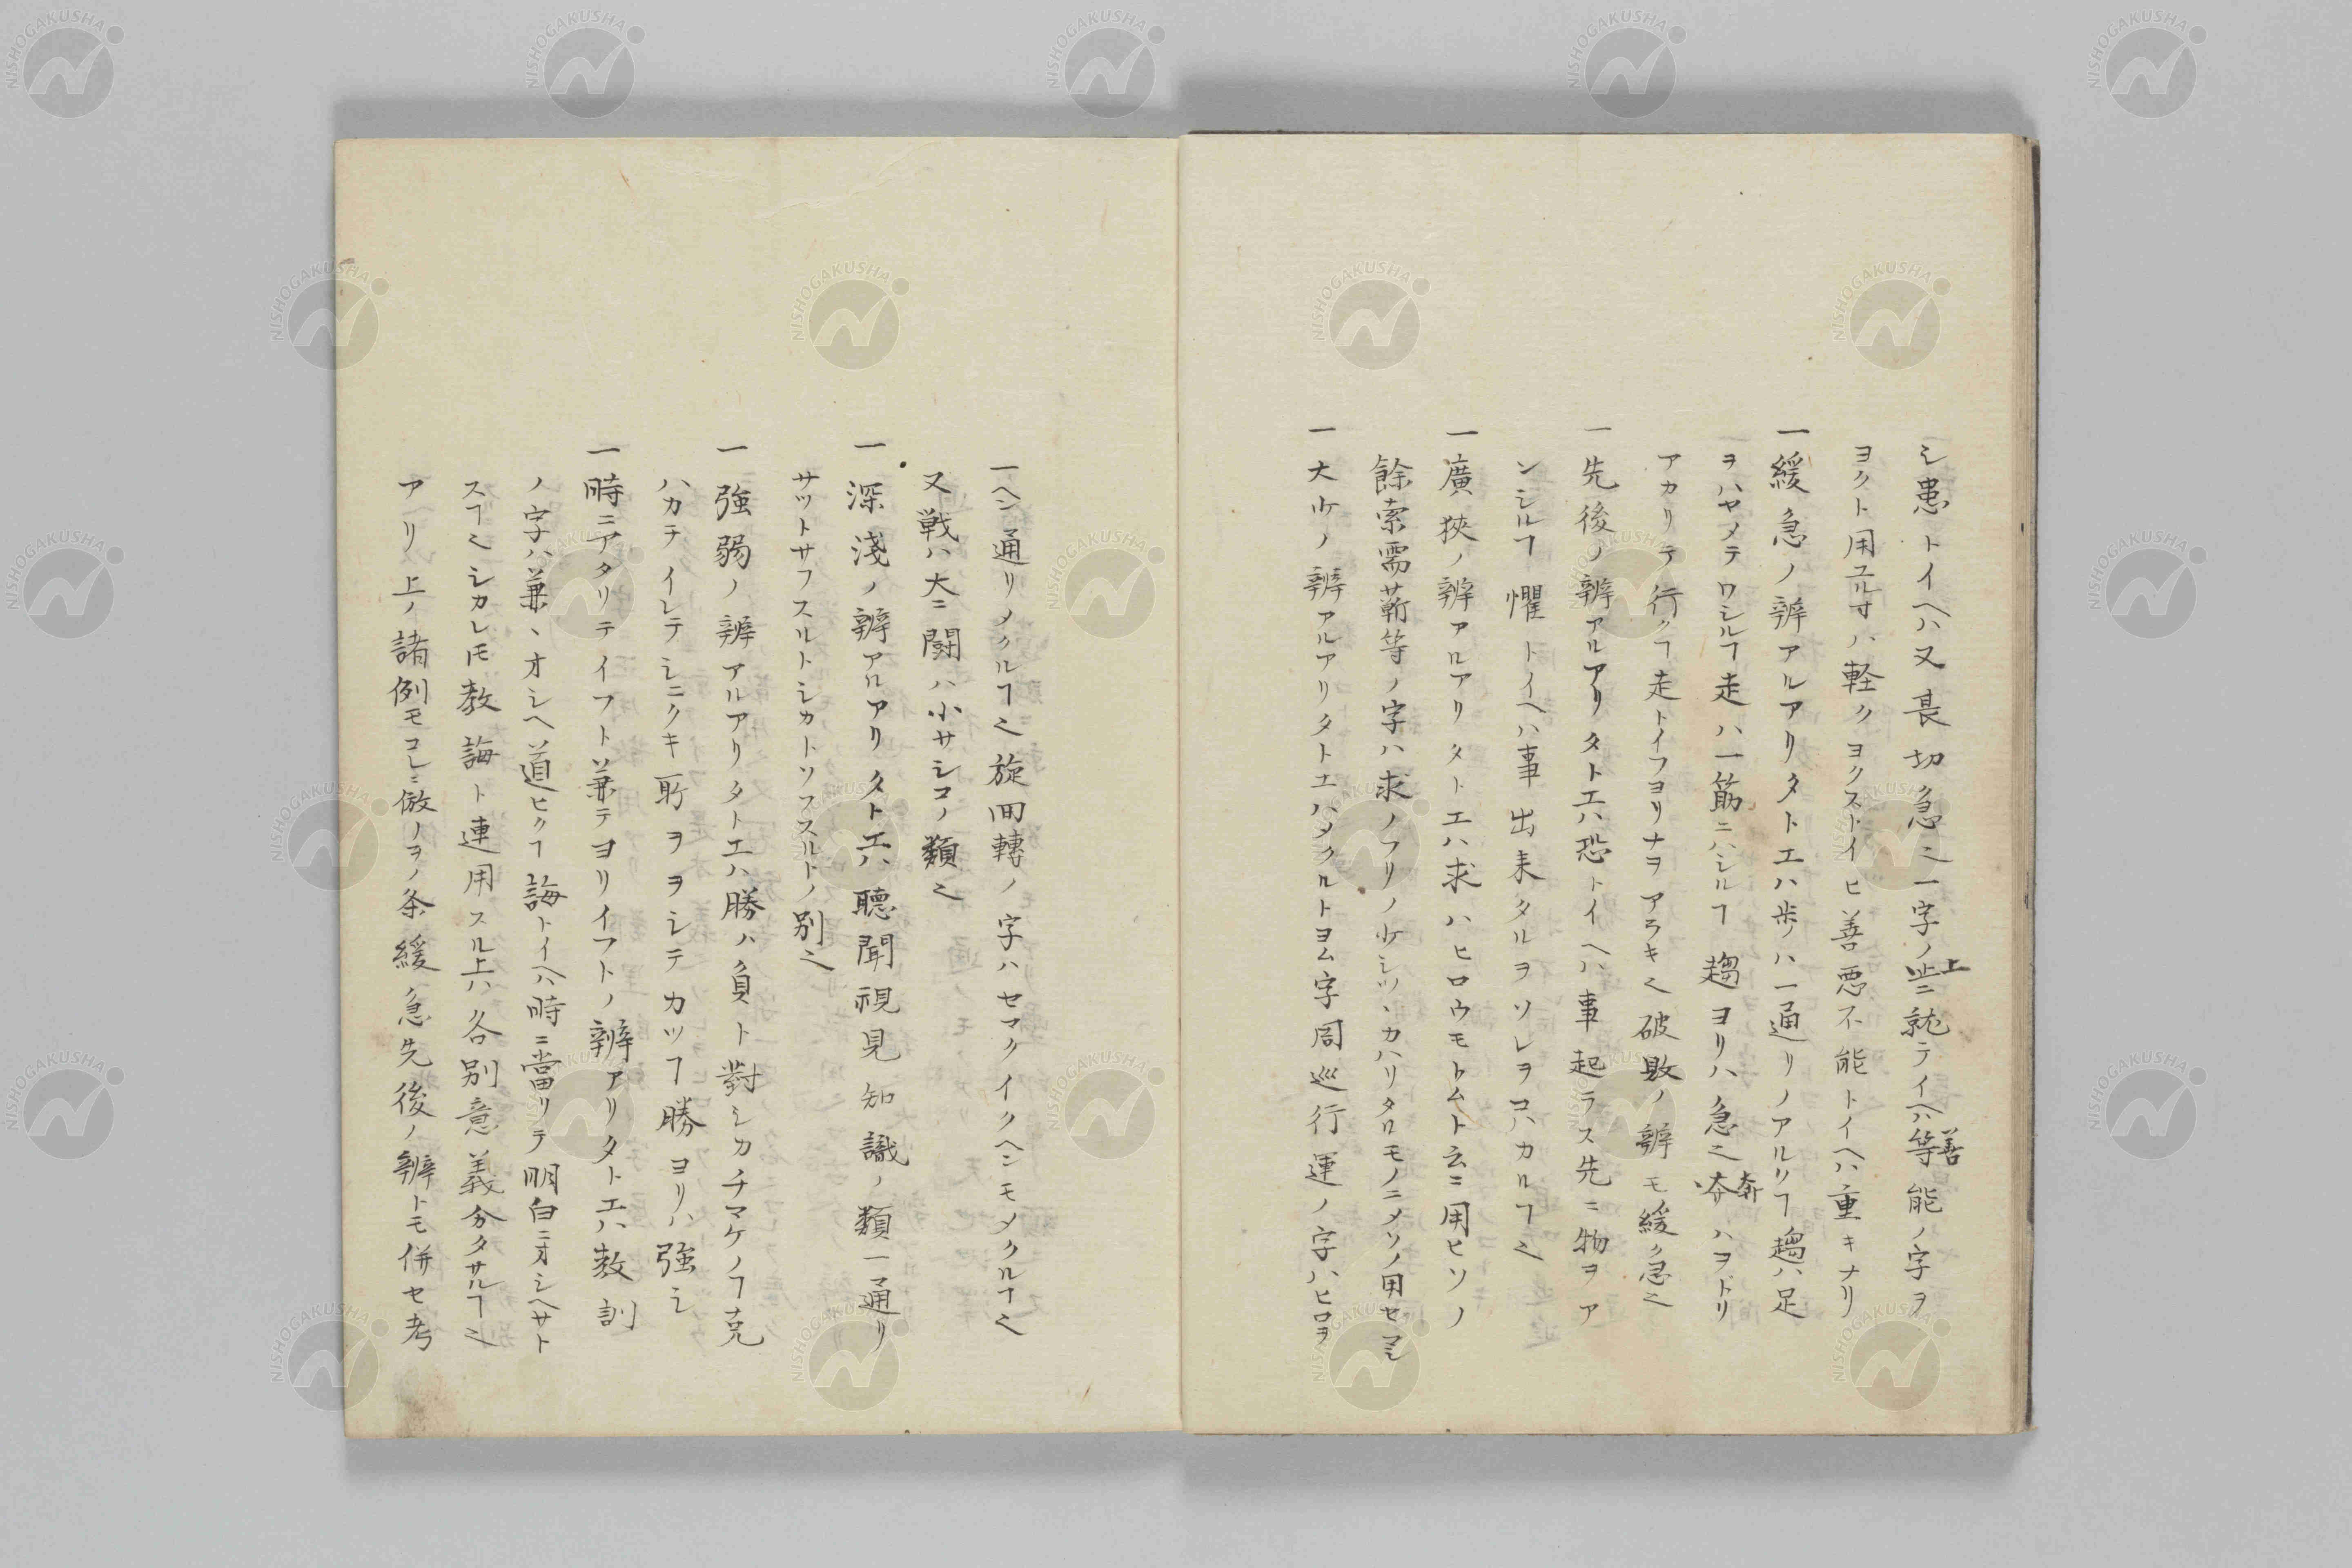 シ患トイヘハ又甚切急也一字ノ上ニ就テイヘハ等善能ノ字ヲ
ヨクト用ユル寸ハ軽クヨクストイヒ善悪不能トイヘハ重キナリ
一緩急ノ辨アルアリタトエハ歩ハ一通リノアルクヿ趨ハ足
ヲハヤメテワシルヿ走ハ一筋ニハシルヿ趨ヨリハ急也奔ハヲドリ
アカリテ行クヿ走トイフヨリナヲアラキ也破敗ノ辨モ緩急也
一先後ノ辨アルアリタトエハ恐トイヘハ事起ラス先ニ物ヲア
ンシルヿ懼トイヘハ事出来タルヲソレヲコハカルヿ也
一廣狹ノ辨アルアリタトエハ求ハヒロウモトムト云ニ用ヒソノ
餘索需蘄等ノ字ハ求ノフリノ少シツヽカハリタルモノニメソノ用セマシ
一大少ノ辨アルアリタトエハメクルトヨム字周巡行運ノ字ハヒロヲ
一ヘン通リメクルヿ也旋回轉ノ字ハセマクイクヘンモメクルヿ也
又戦ハ大ニ闘ハ小サシコノ類也
一深淺ノ辨アルアリタトエハ聴聞視見知識ノ類一通リ
サツトサフスルトシカトソフスルトノ別也
一強弱ノ辨アルアリタトエハ勝ハ負ト對シカチマケノヿ克
ハカテイレテシニクキ所ヲヲシテカツヿ勝ヨリハ強シ
一時ニアタリテイフト兼テヨリイフトノ辨アリタトエハ教訓
ノ字ハ兼ヽオシヘ道ヒクヿ誨トイヘハ時ニ當リテ明白ニオシヘサト
スヿ也シカレ𪜈教誨ト連用スル上ハ各別意義分タサルヿ也
アリ上ノ諸例モコレニ倣ノヲノ条緩急先後ノ辨トモ併セ考